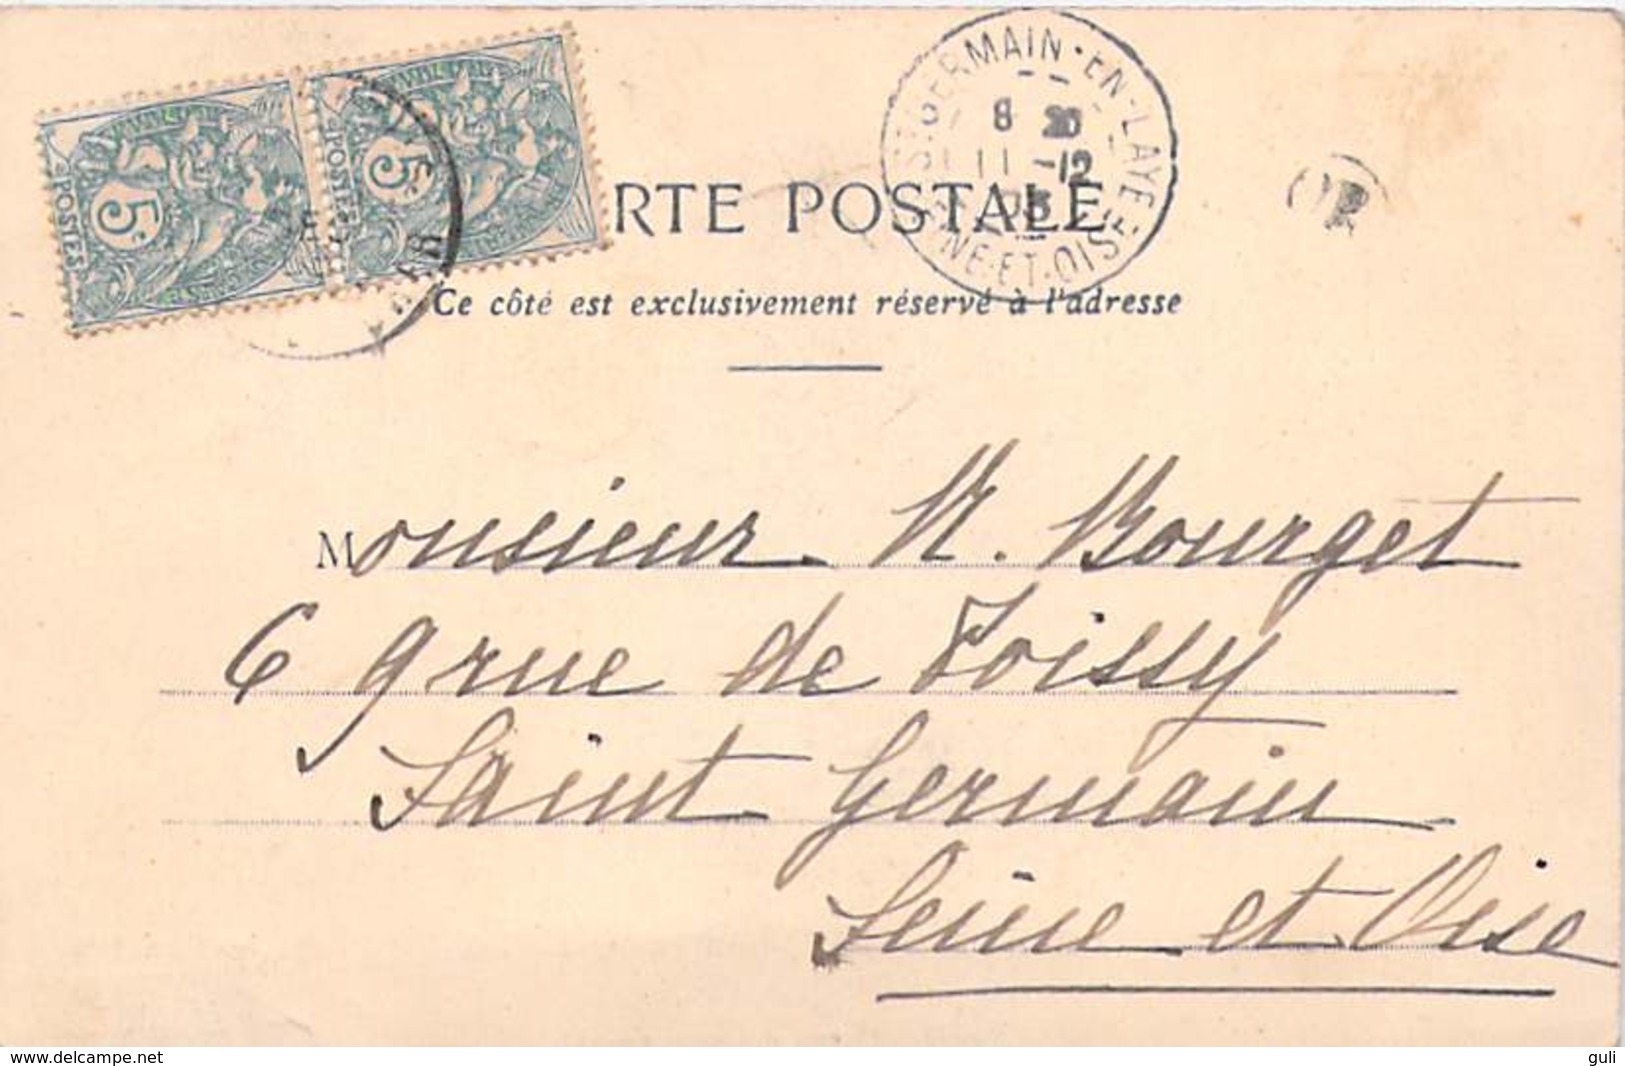 5c
POSTES
5c
POSTES
ST GERMAIN-EN-LAYE
8 20
11 -12
SEINE-ET-OISE
OR
RTE POSTALE
Ce côté est exclusivement réservé à l'adresse
Monsieur N. Bourget
69 rue de Poissy
Saint Germain
Seine et Oise
www.delcampe.net
guli